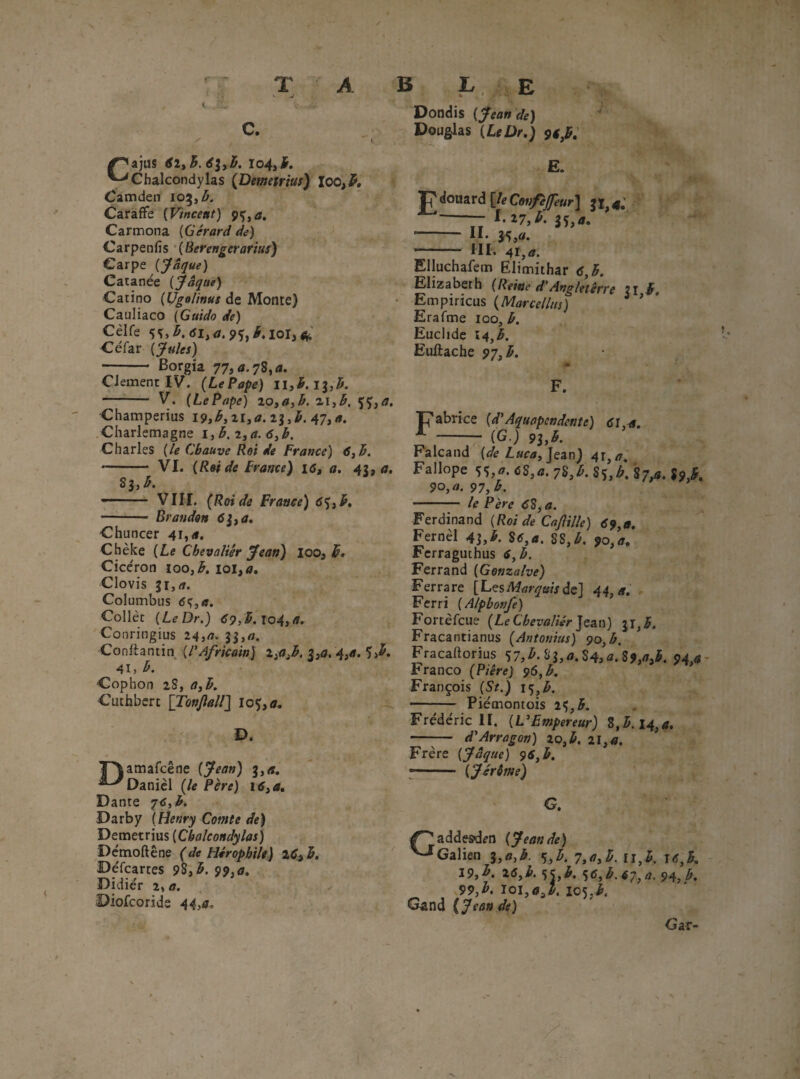 T A B L E
C.
Cajus 62, b. 63, b. 104, b.
Chalcondylas (Demetrius) 100, b.
Camden 103, b.
Caraffe (Vincent) 95, a.
Carmona (Gérard de)
Carpenſis (Berengerarius)
Carpe (Jâque)
Catanée (Jâque)
Catino (Ugolinus de Monte)
Cauliaco (Guido de)
Célſe 55, b. 61, a. 95, b. 101, a.
Céſar (Jules)
——— Borgia 77, a. 78, a.
Clement IV. (Le Pape) 11, b. 13, b.
——— V. (Le Pape) 20, a, b. 21, b. 55, a.
Champerius 19, b, 21, a. 23, b. 47, a.
Charlemagne 1, b. 2, a. 6, b.
Charles (le Chauve Roi de France) 6, b.
——— VI. (Roi de France) 16, a. 43, a.
83, b.
——— VIII. (Roi de France) 65, b.
——— Brandon 63, a.
Chuncer 41, a.
Chèke (Le Chevaliér Jean) 100, b.
Cicéron 100, b. 101, a.
Clovis 31, a.
Columbus 65, a.
Collèt (Le Dr.) 69, b. 104, a.
Conringius 24, a. 33, a.
Conſtantin (l'Africain) 2, a, b. 3, a. 4, a. 5, b.
41, b.
Cophon 28, a, b.
Cuthbert [Tonſtall] 105, a.
D.
Damaſcêne (Jean) 3, a.
Danièl (le Père) 16, a.
Dante 76, b.
Darby (Henry Comte de)
Demetrius (Chalcondylas)
Démoſtêne (de Hérophile) 26, b.
Déſcartes 98, b. 99, a.
Didiér 2, a.
Dioſcoride 44, a.
Dondis (Jean de)
Douglas (Le Dr.) 96, b.
E.
Edouard [le Confèſſeur] 31, a.
——— I. 27, b. 35, a.
——— II. 35, a.
——— III. 41, a.
Elluchaſem Elimithar 6, b.
Elizabeth (Reine d'Angletêrre 31, b.
Empiricus (Marcellus)
Eraſme 100, b.
Euclide 14, b.
Euſtache 97, b.
F.
Fabrice (d'Aquapendente) 61, a.
——— (G.) 93, b.
Falcand (de Luca, Jean) 41, a.
Fallope 55, a. 68, a. 78, b. 85, b. 87, a. 89, b.
90, a. 97, b.
——— le Père 68, a.
Ferdinand (Roi de Caſtille) 69, a.
Fernèl 43, b. 86, a. 88, b. 90, a.
Ferraguthus 6, b.
Ferrand (Gonzalve)
Ferrare [Les Marquis de] 44, a.
Ferri (Alphonſe)
Fortèſcue (Le Chevaliér Jean) 31, b.
Fracantianus (Antonius) 90, b.
Fracaſtorius 57, b. 83, a. 84, a. 89, a, b. 94, a
Franco (Piêre) 96, b.
François (St.) 15, b.
——— Piémontois 25, b.
Frédéric II. (L'Empereur) 8, b. 14, a.
——— d'Arragon) 20, b. 21, a.
Frère (Jâque) 96, b.
——— (Jérôme)
G.
Gaddesden (Jean de)
Galien 3, a, b. 5, b. 7, a, b. 11, b. 16, b.
19, b. 26, b. 55, b. 56, b. 67, a. 94, b.
99, b. 101, a, b. 105, b.
Gand (Jean de)
Gar-